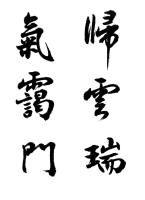 歸雲瑞
氣靄門